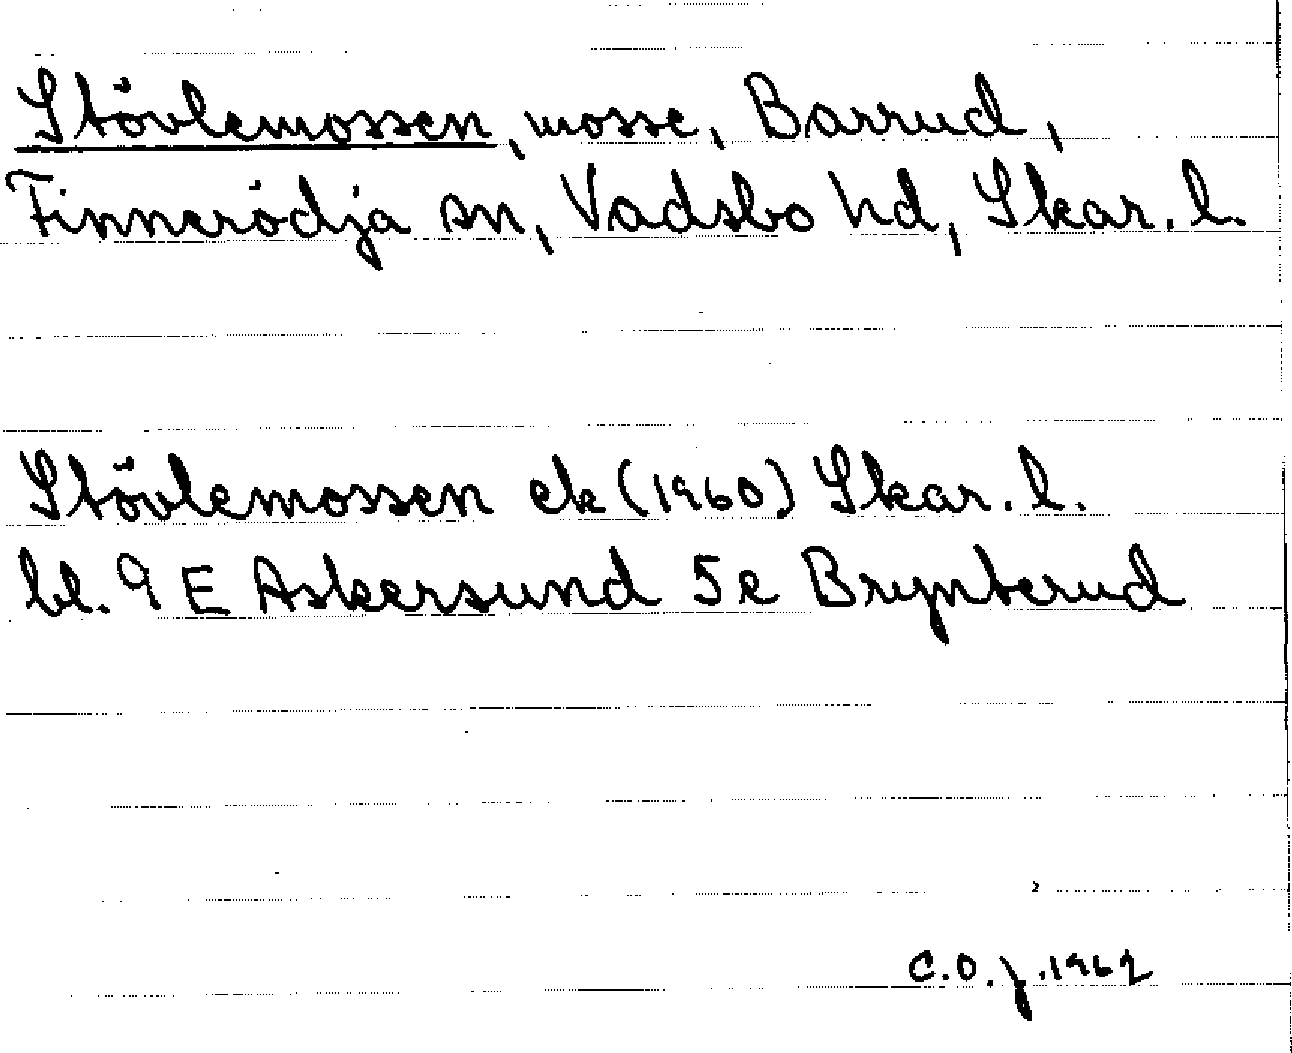 Stövlemossen, mosse, Barrud,
Finnerödja sn, Vadsbo hd, Skar. l.
Stövlemossen ek (1960) Skar. l.
bl. 9 E Askersund 5e Brynterud
C.O.J. 1962